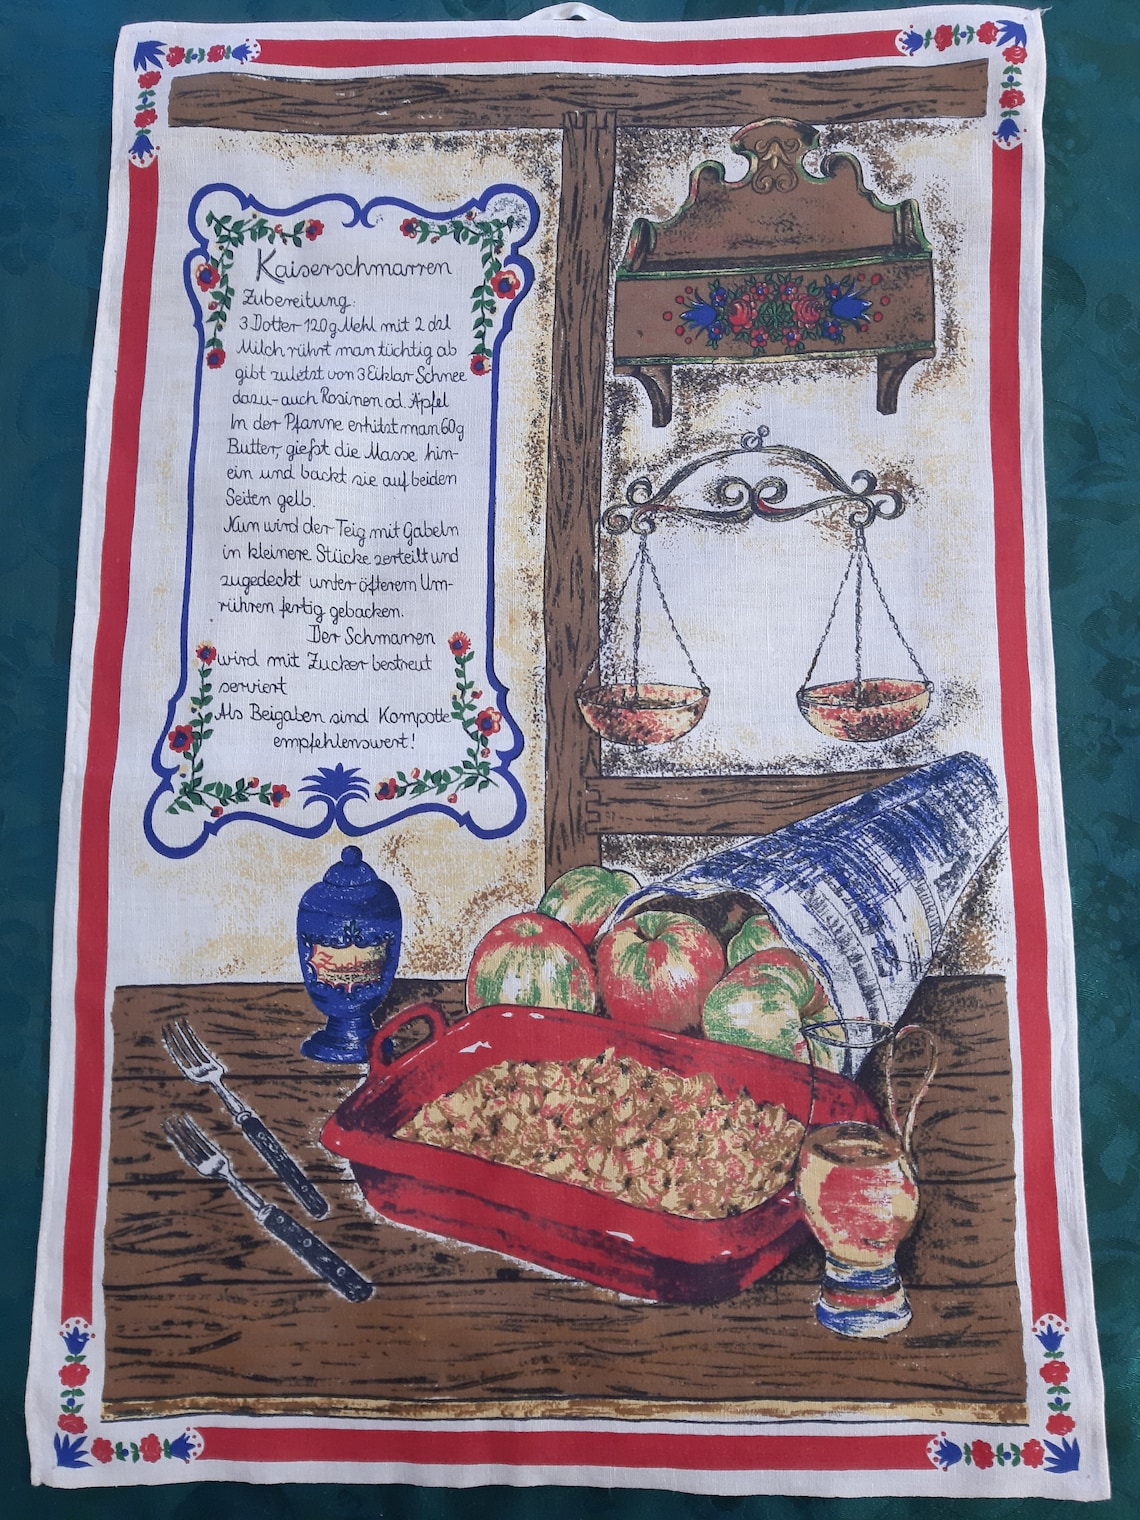 Kaiserschmarren
Zubereitung:
3 Dotter 120g Mehl mit 2 dal
Milch rührt man tüchtig ab
gibt zuletzt von 3 Eiklar Schnee
dazu-auch Rosinen od. Äpfel
In der Pfanne erhitzt man 60g
Butter, gießt die Masse hin-
ein und backt sie auf beiden
Seiten gelb.
Nun wird der Teig mit Gabeln
in kleinere Stücke zerteilt und
zugedeckt unter öfterem Um-
rühren fertig gebacken.
Der Schmarren
wird mit Zucker bestreut
serviert
Als Beigaben sind Kompotte
empfehlenswert!
Zucker